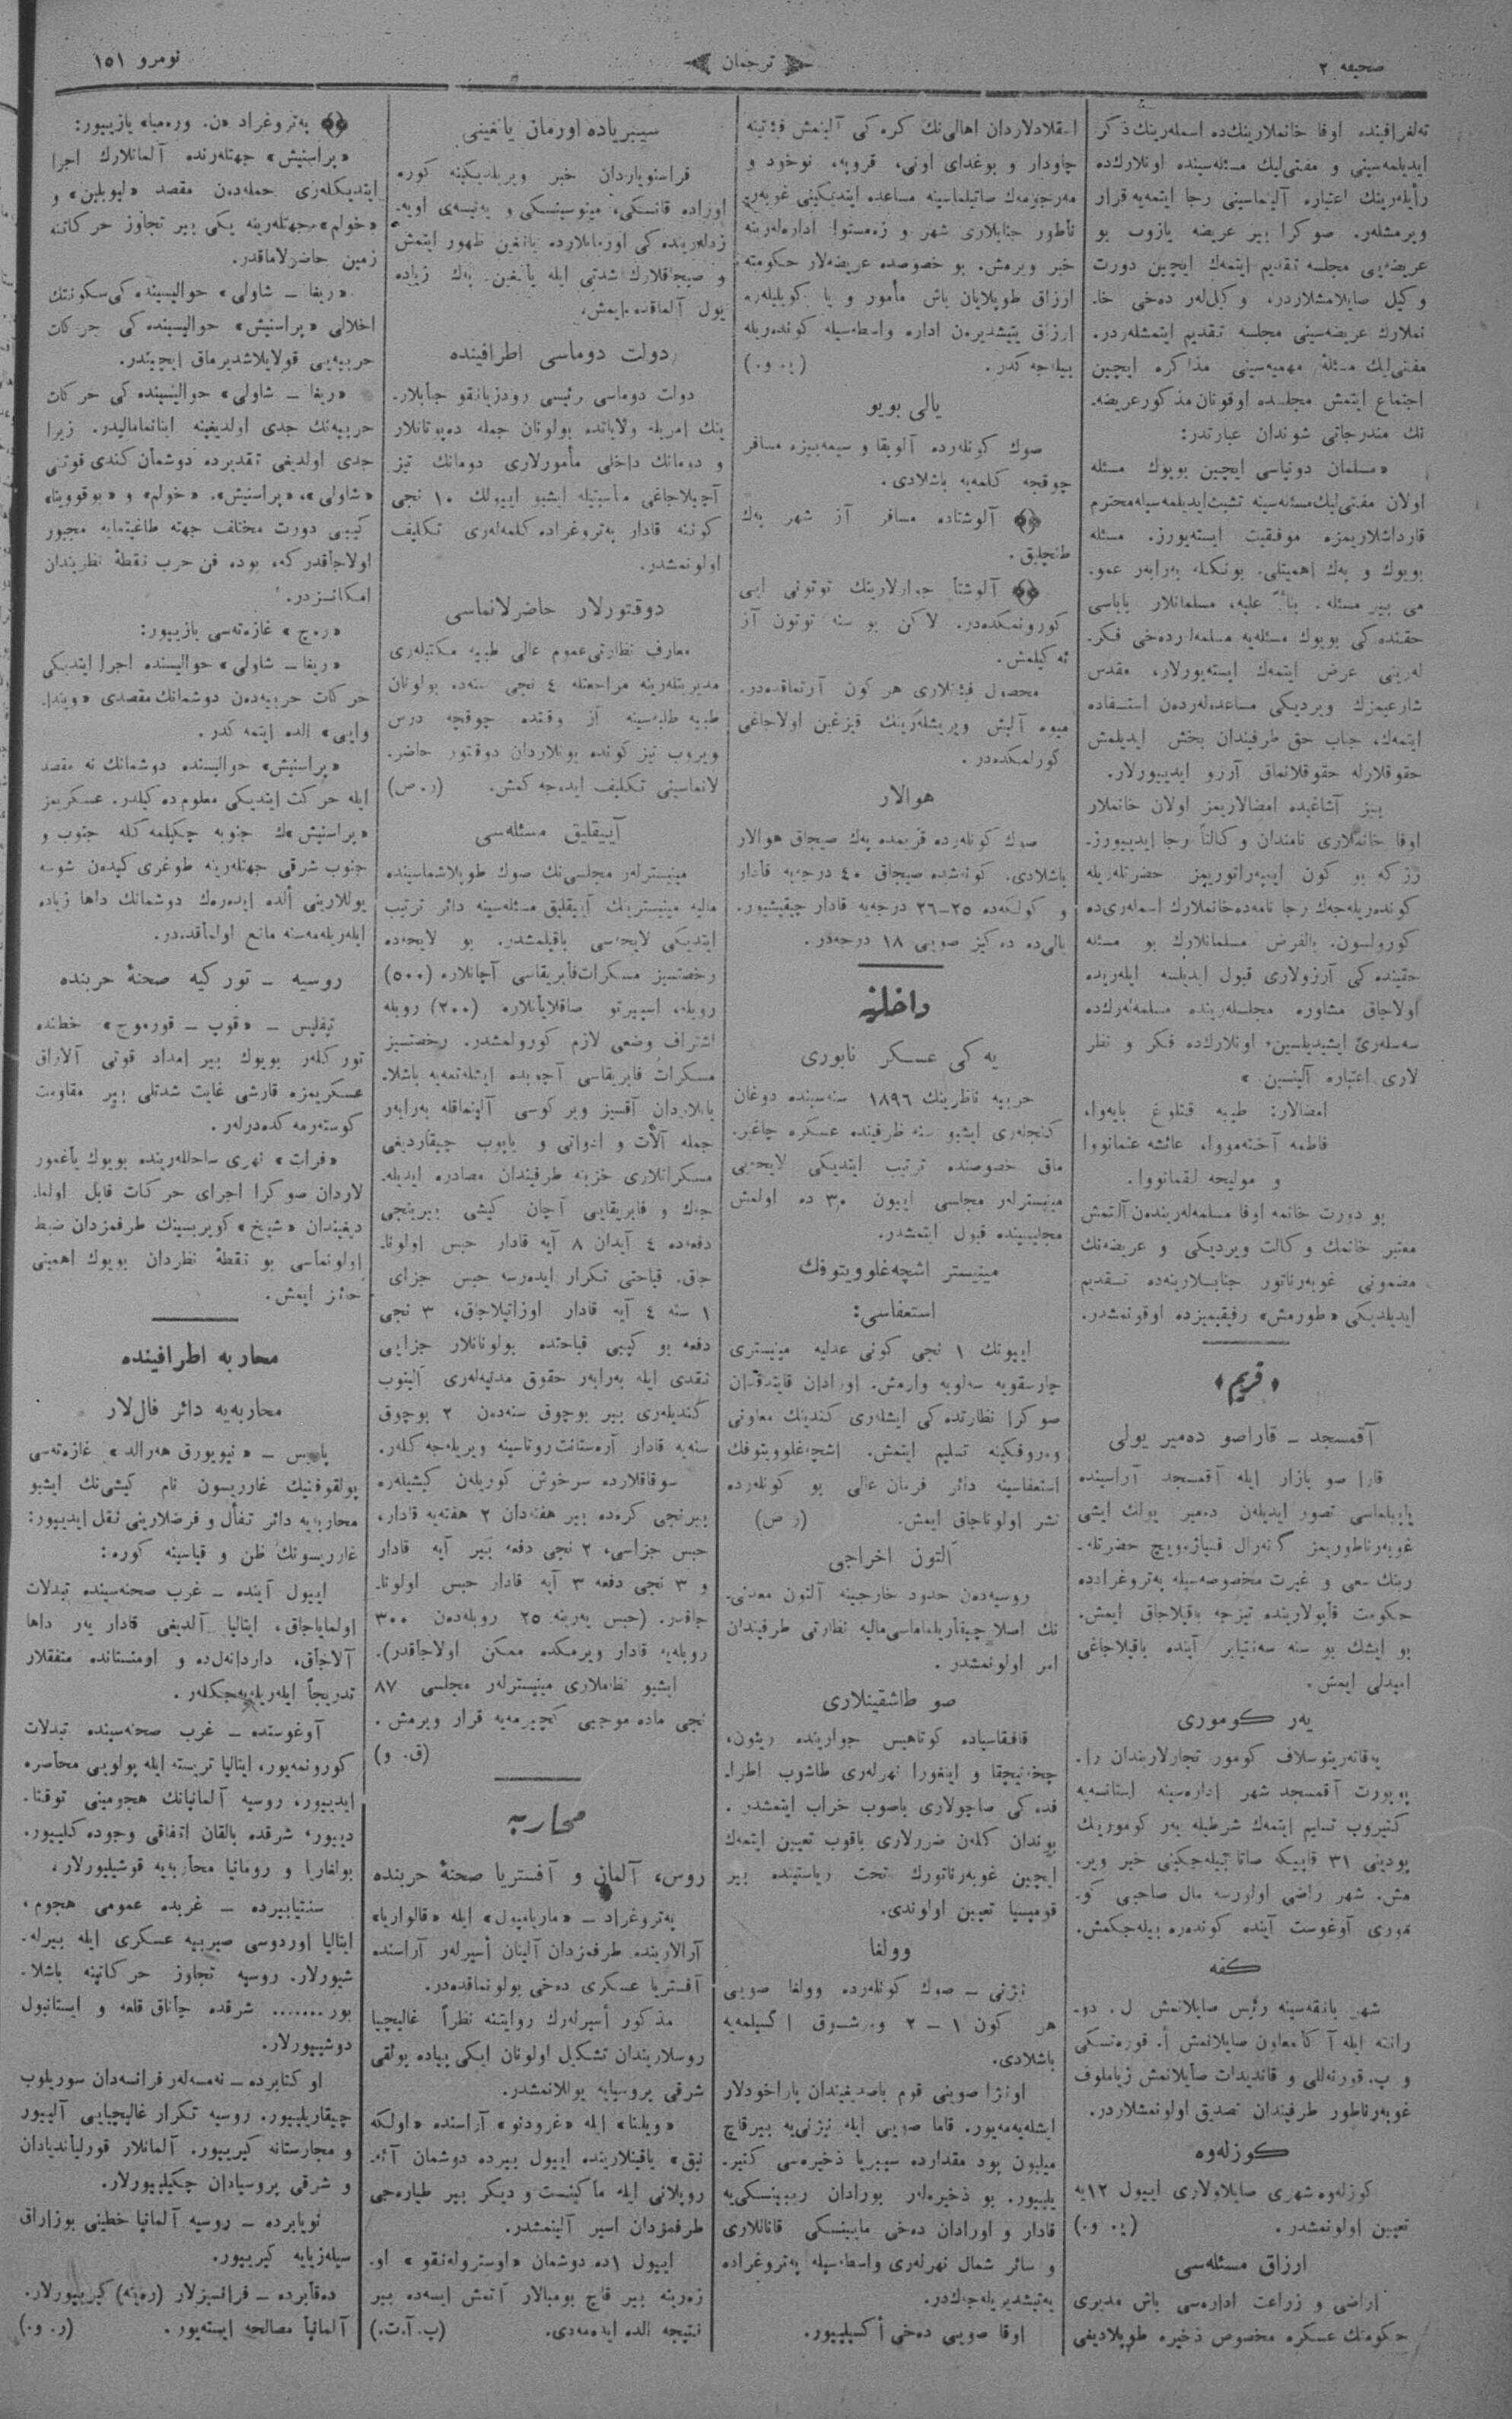 صحیفه ٢
ترجمان
نومرو ١٥١
تەلغرافینده اوفا خانملارینك‌ده اسملەرینك ذکر
ایدیلمەسینی و مفتی‌لیك مسئلەسینده اونلارك‌ده
رأیلەرینك اعتباره آلینماسینی رجا ایتمەیه قرار
ویرمشلەر. صوکرا بیر عریضه یازوب بو
عریضەیی مجلسه تقدیم ایتمەك ایچین دورت
وکیل صایلامشلاردر، وکیل‌لەر دەخی خا-
نملارك عریضەسینی مجلسه تقدیم ایتمشلەردر.
مفتی‌لیك مسئلۀ مهمیەسینی مذاکره ایچین
اجتماع ایتمش مجلسده اوقونان مذکور عریضه-
نك مندرجاتی شوندان عبارتدر:
«مسلمان دونیاسی ایچین بویوك مسئله
اولان مفتی‌لیك مسئلەسینه تشبث ایدیلمەسیله محترم
قارداشلاریمزه موفقیت ایستەیورز. مسئله
بویوك و پەك اهمیتلی. بونكله بەرابەر عمو-
می بیر مسئله. بناءً علیه، مسلمانلار باباسی
حقنده کی بویوك مسئلەیه مسلمەلر دەخی فکر-
لەرینی عرض ایتمەك ایستەیورلار، مقدس
شارعیمزك ویردیکی مساعدەلەردەن استفاده
ایتمەك، جناب حق طرفیندان بخش ایدیلمش
حقوقلارله حقوقلانماق آرزو ایدییورلار.
بیز آشاغیده امضالاریمز اولان خانملار
اوفا خانملاری نامندان وکالتاً رجا ایدییورز-
زز که بو کون ایمپەراتوریمز حضرتلەریله
کوندەریلەجەك رجا نامەده خانملارك اسملەری‌ده
کورولسون. بالفرض مسلمانلارك بو مسئله
حقینده کی آرزولاری قبول ایدیلسه ایلەریده
اولاجاق مشاوره مجلسلەرینده مسلمەلەرك‌ده
سەسلەری ایشیدیلسین، اونلارك‌ده فکر و نظر
لاری اعتباره آلینسین»
امضالار: طیبه قتلوغ بایەوا،
فاطمه آختەمووا، عائشه عثمانووا
و مولیحه لقمانووا.
بو دورت خانمه اوفا مسلمەلەریندەن آلتمش
معتبر خانمك وکالت ویردیکی و عریضەنك
مضمونی غوبەرناتور جنابلارینەده تقدیم
ایدیلدیکی «طورمش» رفیقیمیزده اوقونمشدر.
﴿قریم﴾
آقمسجد ـ قاراصو دەمیر یولی
قارا صو بازار ایله آقمسجد آراسینده
یاپیلماسی تصور ایدیلەن دەمیر یولك ایشی
غوبەرناطوریمز گنەرال قنیاژەویچ حضرتله-
رینك سعی و غیرت مخصوصەسیله پەتروغرادده
حکومت قاپولارینده تیزجه باقیلاجاق ایمش.
بو ایشك بو سنه سەنتیابر آینده باقیلاجاغی
امیدلی ایمش.
یەر کوموری
یەقاتەرینوسلاف کومور تجارلاریندان را-
پوپورت آقمسجد شهر ادارەسینه استانسەیه
کتیروب تسلیم ایتمەك شرطیله یەر کومورینك
پودینی ٣١ قاپیکه صاتا بیلەجکینی خبر ویر-
مش. شهر راضی اولورسه مال صاحبی کو-
موری آوغوست آینده کوندەره بیلەجکمش.
کفه
شهر بانقەسینه رئیس صایلانمش ل. دو-
رانته ایله آ کا معاون صایلانمش أ. قورەتسکی
و پ. قورنەللی و قاندیدات صایلانمش زیاملوف
غوبەرناطور طرفیندان تصدیق اولونمشلاردر.
کوزلەوه
کوزلەوه شهری صایلاولاری اییول ١٢یه
تعیین اولونمشدر. (ی. و.)
ارزاق مسئلەسی
اراضی و زراعت ادارەسی باش مدیری
حکومتك عسکره مخصوص ذخیره طوپلادیغی
اسقلادلاردان اهالی‌نك کرە کی آلینمش فیئتینه
چاودار و بوغدای اونی، قروپه، نوخود و
مەرجیمەك صاتیلماسینه مساعده ایتدیکینی غوبەر-
ناطور جنابلاری شهر و زەمستوا ادارەلەرینه
خبر ویرمش. بو خصوصده عریضەلار حکومته
ارزاق طوپلایان باش مأمور و یا کوپلیلەره
ارزاق یتیشدیرەن اداره واسطەسیله کوندەریله
بیلەجەکدر. (ی. و.)
یالی بویو
صوك کونلەرده آلوپقا و سیمەییزه مسافر
چوقجه کلمەیه باشلادی.
﴿﴾ آلوشتاده مسافر آز شهر پەك
طنچلیق.
﴿﴾ آلوشتا جوارلارینك توتونی ایی
کورونمکدەدر. لاکن بو سنه توتون آز
ئه کیلمش.
محصول فیئتلاری هر کون آرتماقدەدر.
میوه آلیش ویریشلەرینك قیزغین اولاجاغی
کورلمکدەدر.
هوالار
صوك کونلەرده قریمده پەك صیجاق هوالار
باشلادی. کونەشده صیجاق ٤٠ درجەیه قادار
و کولکەده ٢٥-٢٦ درجەیه قادار چیقیشیور.
یالی‌ده دەکیز صویی ١٨ درجەدر.
داخلیه
یەکی عسکر نابوری
حربیه ناظرینك ١٨٩٦ سنەسینده دوغان
کنجلەری ایشبو سنه ظرفینده عسکره چاغیر-
ماق خصوصنده ترتیب ایتدیکی لایحەیی
مینیسترلەر مجلسی اییون ٣٠ ده اولمش
مجلیسینده قبول ایتمشدر.
مینیستر اشچەغلوویتوفك
استعفاسی:
اییونك ١ نجی کونی عدلیه مینیستری
چارسقویه سەلویه وارمش. اورادان قایتدقدان
صوکرا نظارتدەکی ایشلەری کندینك معاونی
وەروفکینه تسلیم ایتمش. اشچەغلوویتوفك
استعفاسینه دائر فرمان عالی بو کونلەرده
نشر اولوناجاق ایمش. (ر ص)
آلتون اخراجی
روسیەدەن حدود خارجینه آلتون معدنی-
نك اصلا چیقاریلماماسی مالیه نظارتی طرفیندان
امر اولونمشدر.
صو طاشقینلاری
قافقاسیاده کوتاهیس جوارینده ریئون،
چخەنیچقا و اینغورا نهرلەری طاشوب اطرا-
فدەکی صاچولاری باصوب خراب ایتمشدر.
بوندان کلەن ضررلاری باقوب تعیین ایتمەك
ایچین غوبەرناتورك تحت ریاستینده بیر
قومیسیا تعیین اولوندی.
وولغا
نیژنی ـ صوك کونلەرده وولغا صویی
هر کون ١ ـ ٢ ویرشوق اکسیلمەیه
باشلادی.
اونژا صوینی قوم باصدیغیندان پاراخودلار
ایشلەیەمەیور. قاما صویی ایله نیژنی‌یه بیر قاچ
میلیون پود مقدارده سیبریا ذخیرەسی کتیر-
یلییور. بو ذخیرەلەر بورادان ریبینسکی‌یه
قادار و اورادان دەخی ماریینسکی قاناللاری
و سائر شمال نهرلەری واسطەسیله پەتروغراده
یەتیشدیریلەجەك‌در.
اوقا صویی دەخی أکسیلییور.
سیبریاده اورمان یانغینی
قراسنویاردان خبر ویریلدیکینه کوره
اوراده قانسکی، مینوسینسکی و یەنیسەی اویە-
زدلەریندە کی اورمانلارده یانغین ظهور ایتمش
و صیجاقلارك شدتی ایله یانغین پەك زیاده
یول آلماقده ایمش.
دولت دوماسی اطرافینده
دولت دوماسی رئیسی رودزیانقو جنابلار-
ینك امریله ولایاتده بولونان جمله دەپوتاتلار
و دومانك داخلی مأمورلاری دومانك تیز
آچیلاجاغی مناسبتیله ایشبو اییولك ١٠ نجی
کونینه قادار پەتروغراده کلمەلەری تکلیف
اولونمشدر.
دوقتورلار حاضرلانماسی
معارف نظارتی عموم عالی طبیه مکتبلەری
مدیریتلەرینه مراجعتله ٤ نجی سنەده بولونان
طبیه طلبەسینه آز وقتده چوقچه درس
ویروب تیز کونده بونلاردان دوقتور حاضر-
لانماسینی تکلیف ایدەجەکمش. (ر. ص)
آییقلیق مسئلەسی
مینیسترلەر مجلسی‌نك صوك طوپلاشماسینده
مالیه مینیسترینك آییقلیق مسئلەسینه دائر ترتیب
ایتدیکی لایحەسی باقیلمشدر. بو لایحەده
رخصتسیز مسکرات فابریقاسی آچانلاره (٥٠٠)
روبله، اسپیرتو صاقلایانلاره (٢٠٠) روبله
اشتراف وضعی لازم کورولمشدر. رخصتسیز
مسکرات فابریقاسی آچوبده ایشلەتمەیه باشلا-
یانلاردان آقسیز ویرکوسی آلینماقله بەرابەر
جمله آلات و ادواتی و یاپوب چیقاردیغی
مسکراتلاری خزینه طرفیندان مصادره ایدیله-
جەك و فابریقایی آچان کیشی بیرینجی
دفعەده ٤ آیدان ٨ آیه قادار حبس اولونا-
جاق. قباحتی تکرار ایدەرسه حبس جزای
١ سنه ٤ آیه قادار اوزاتیلاجاق، ٣ نجی
دفعه بو کیبی قباحتده بولونانلار جزایی
نقدی ایله بەرابەر حقوق مدنیەلەری آلینوب
کندیلەری بیر بوچوق سنەدەن ٢ بوچوق
سنەیه قادار آرەستانت روتاسینه ویریلەجەکلەر.
سوقاقلارده سرخوش کوریلەن کیشیلەره
بیرنجی کرەده بیر هفتەدان ٢ هفتەیه قادار،
حبس جزاسی، ٢ نجی دفعه بیر آیه قادار
و ٣ نجی دفعه ٣ آیه قادار حبس اولونا-
جاقدر. (حبس یەرینه ٢٥ روبلەدەن ٣٠٠
روبلەیه قادار ویرمکده ممکن اولاجاقدر).
ایشبو نظاملاری مینیسترلەر مجلسی ٨٧
نجی ماده موجبی کچیرمەیه قرار ویرمش.
(ق. و)
محاربه
روس، آلمان و آفستریا صحنۀ حربنده
پەتروغراد ـ «ماریامپول» ایله «قالواریا»
آرالارینده طرفمزدان آلینان أسیرلەر آراسنده
آفستریا عسکری دەخی بولونماقدەدر.
مذکور أسیرلەرك روایتنه نظراً غالیچیا
روسلاریندان تشکیل اولونان ایکی پیاده پولقی
شرقی پروسیایه یوللانمشدر.
«ویلنا» ایله «غرودنو» آراسنده «اولکه
نیق» یاقینلارینده اییول بیرده دوشمان آئه-
روپلانی ایله ماکینست و دیکر بیر طیارەجی
طرفمزدان اسیر آلینمشدر.
اییول ١ده دوشمان «اوسترولەنقو» او-
زەرینه بیر قاچ بومبالار آتمش ایسەده بیر
نتیجه الده ایدەمەدی. (پ. آ.ت.)
﴿﴾ پەتروغراد «ن. ورەمیا» یازییور:
«پراسنیش» جهتلەرنده آلمانلارك اجرا
ایتدیکلەری حملەدەن مقصد «لیوبلین» و
«خولم» جهتلەرینه یکی بیر تجاوز حرکاتنه
زمین حاضرلاماقدر.
«ریغا ـ شاولی» حوالیسینده کی سکونتك
اخلالی «پراسنیش» حوالیسینده کی حرکات
حربیەیی قولایلاشدیرماق ایچیندر.
«ریغا ـ شاولی» حوالیسینده کی حرکات
حربیەنك جدی اولدیغینه اینانمامالیدر. زیرا
جدی اولدیغی تقدیرده دوشمان کندی قوتنی
«شاولی»، «پراسنیش»، «خولم» و «بوقووینا»
کیبی دورت مختلف جهته طاغیتمایه مجبور
اولاجاقدرکه، بوده فن حرب نقطۀ نظریندان
امکانسزدر.
«رەچ» غازەتەسی یازییور:
«ریغا ـ شاولی» حوالیسنده اجرا ایتدیکی
حرکات حربیەدەن دوشمانك مقصدی «ویندا-
وایی» الده ایتمەکدر.
«پراسنیش» حوالیسنده دوشمانك نه مقصد
ایله حرکت ایتدیکی معلوم دەکیلدر. عسکریمز
«پراسنیش»ك جنوبه چکیلمەکله جنوب و
جنوب شرقی جهتلەرینه طوغری کیدەن شوسه
یوللارینی ألده ایدەرەك دوشمانك داها زیاده
ایلەریلەمەسنه مانع اولماقدەدر.
روسیه ـ تورکیه صحنۀ حربنده
تیفلیس ـ «قوپ ـ قورموج» خطنده
تورکلەر بویوك بیر امداد قوتی آلاراق
عسکریمزه قارشی غایت شدتلی بیر مقاومت
کوستەرمەکدەدرلەر.
«فرات» نهری ساحللەرینده بویوك یاغمور
لاردان صوکرا اجرای حرکات قابل اولما-
دیغیندان «شیخ» کوپریسینك طرفمزدان ضبط
اولونماسی بو نقطۀ نظردان بویوك اهمیتی
حائز ایمش.
محاربه اطرافینده
محاربەیه دائر فال‌لار
پاریس ـ «نیویورق هەرالد» غازەتەسی
پولقوفنیك غارریسون نام کیشی‌نك ایشبو
محاربەیه دائر تفأل و فرضلارینی نقل ایدییور:
غارریسونك ظن و قیاسینه کوره:
اییول آینده ـ غرب صحنەسینده تبدلات
اولمایاجاق، ایتالیا آلدیغی قادار یەر داها
آلاجاق، داردانەل‌ده و اومنستانده متفقلار
تدریجاً ایلەریلەیەجکلەر.
آوغوستده ـ غرب صحنەسینده تبدلات
کورونمەیور، ایتالیا تریسته ایله پولویی محاصره
ایدییور، روسیه آلمانیانك هجومینی توقتا-
دییور، شرقده بالقان اتفاقی وجوده کلییور.
بولغاریا و رومانیا محاربەیه قوشیلیورلار،
سنتیابیرده ـ غربده عمومی هجوم،
ایتالیا اوردوسی صیربیه عسکری ایله بیرله-
شیورلار. روسیه تجاوز حرکاتینه باشلا-
یور....... شرقده چاناق قلعه و ایستانبول
دوشییورلار.
اوکتابرده ـ نەمسەلەر فرانسەدان سوریلوب
چیقاریلییور. روسیه تکرار غالیچیایی آلییور
و مجارستانه کیرییور. آلمانلار قورلیاندیادان
و شرقی پروسیادان چکیلییورلار.
نویابرده ـ روسیه آلمانیا خطینی بوزاراق
سیلەزیایه کیرییور.
دەقابرده ـ فرانسیزلار (رەینه) کیرییورلار.
آلمانیا مصالحه ایستەیور. (ر. و.)